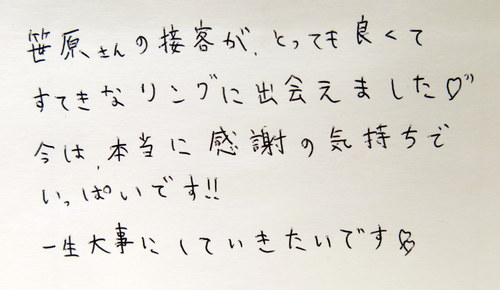 笹原さんの接客が、とっても良くて
すてきなリングに出会えました♡"
今は、本当に感謝の気持ちで
いっぱいです!!
一生大事にしていきたいです♡